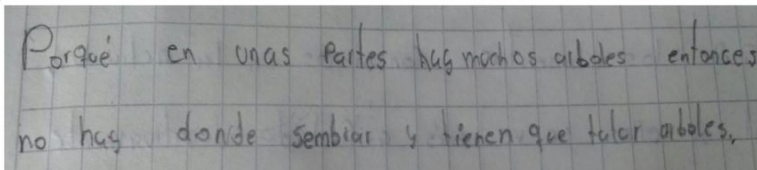 Porqué en unas Partes hay muchos arboles entonces
no hay donde sembrar y tienen que talar arboles.